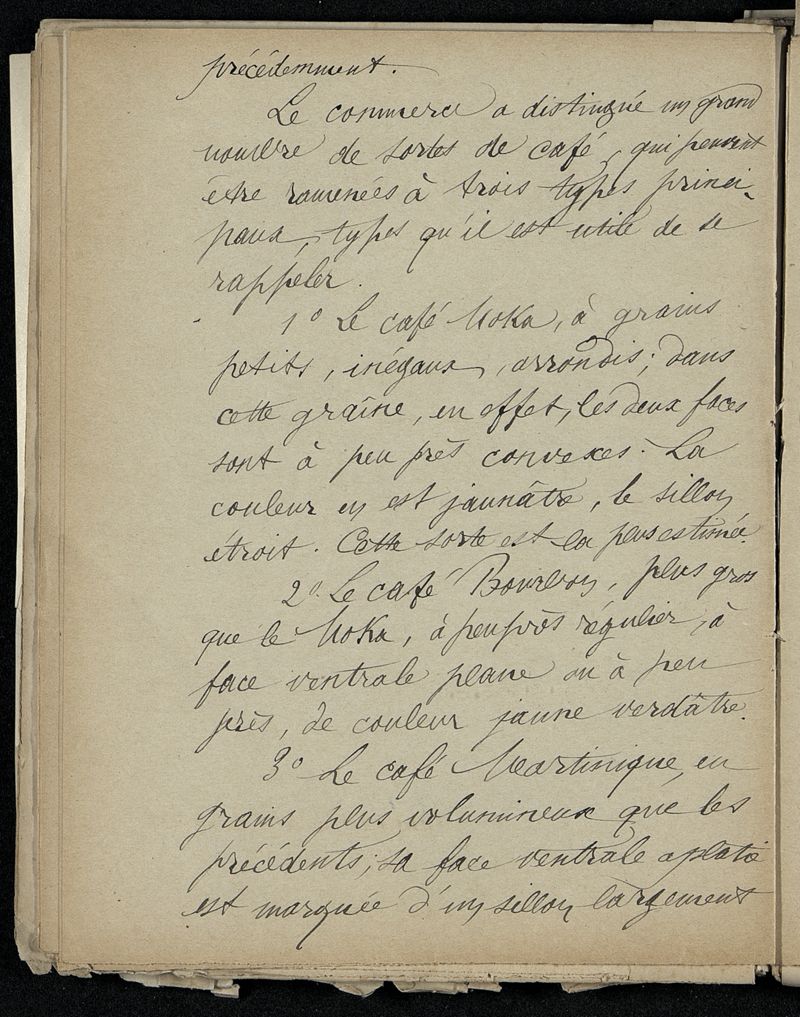 précédemment.
Le commerce a distingué un grand
nombre de sortes de café, qui peuvent
être ramenées à trois types princi-
paux, types qu'il est utile de se
rappeler.
1º Le café Moka, à grains
petits, inégaux, arrondis; dans
cette graine, en effet, les deux faces
sont à peu près convexes. La
couleur en est jaunâtre, le sillon
étroit. Cette sorte est la plus estimée.
2º. Le café Bourbon, plus gros
que le Moka, à peu près régulier, à
face ventrale plane ou à peu
près, de couleur jaune verdâtre.
3º Le café Martinique, en
grains plus volumineux que les
précédents; sa face ventrale aplatie
est marquée d'un sillon largement